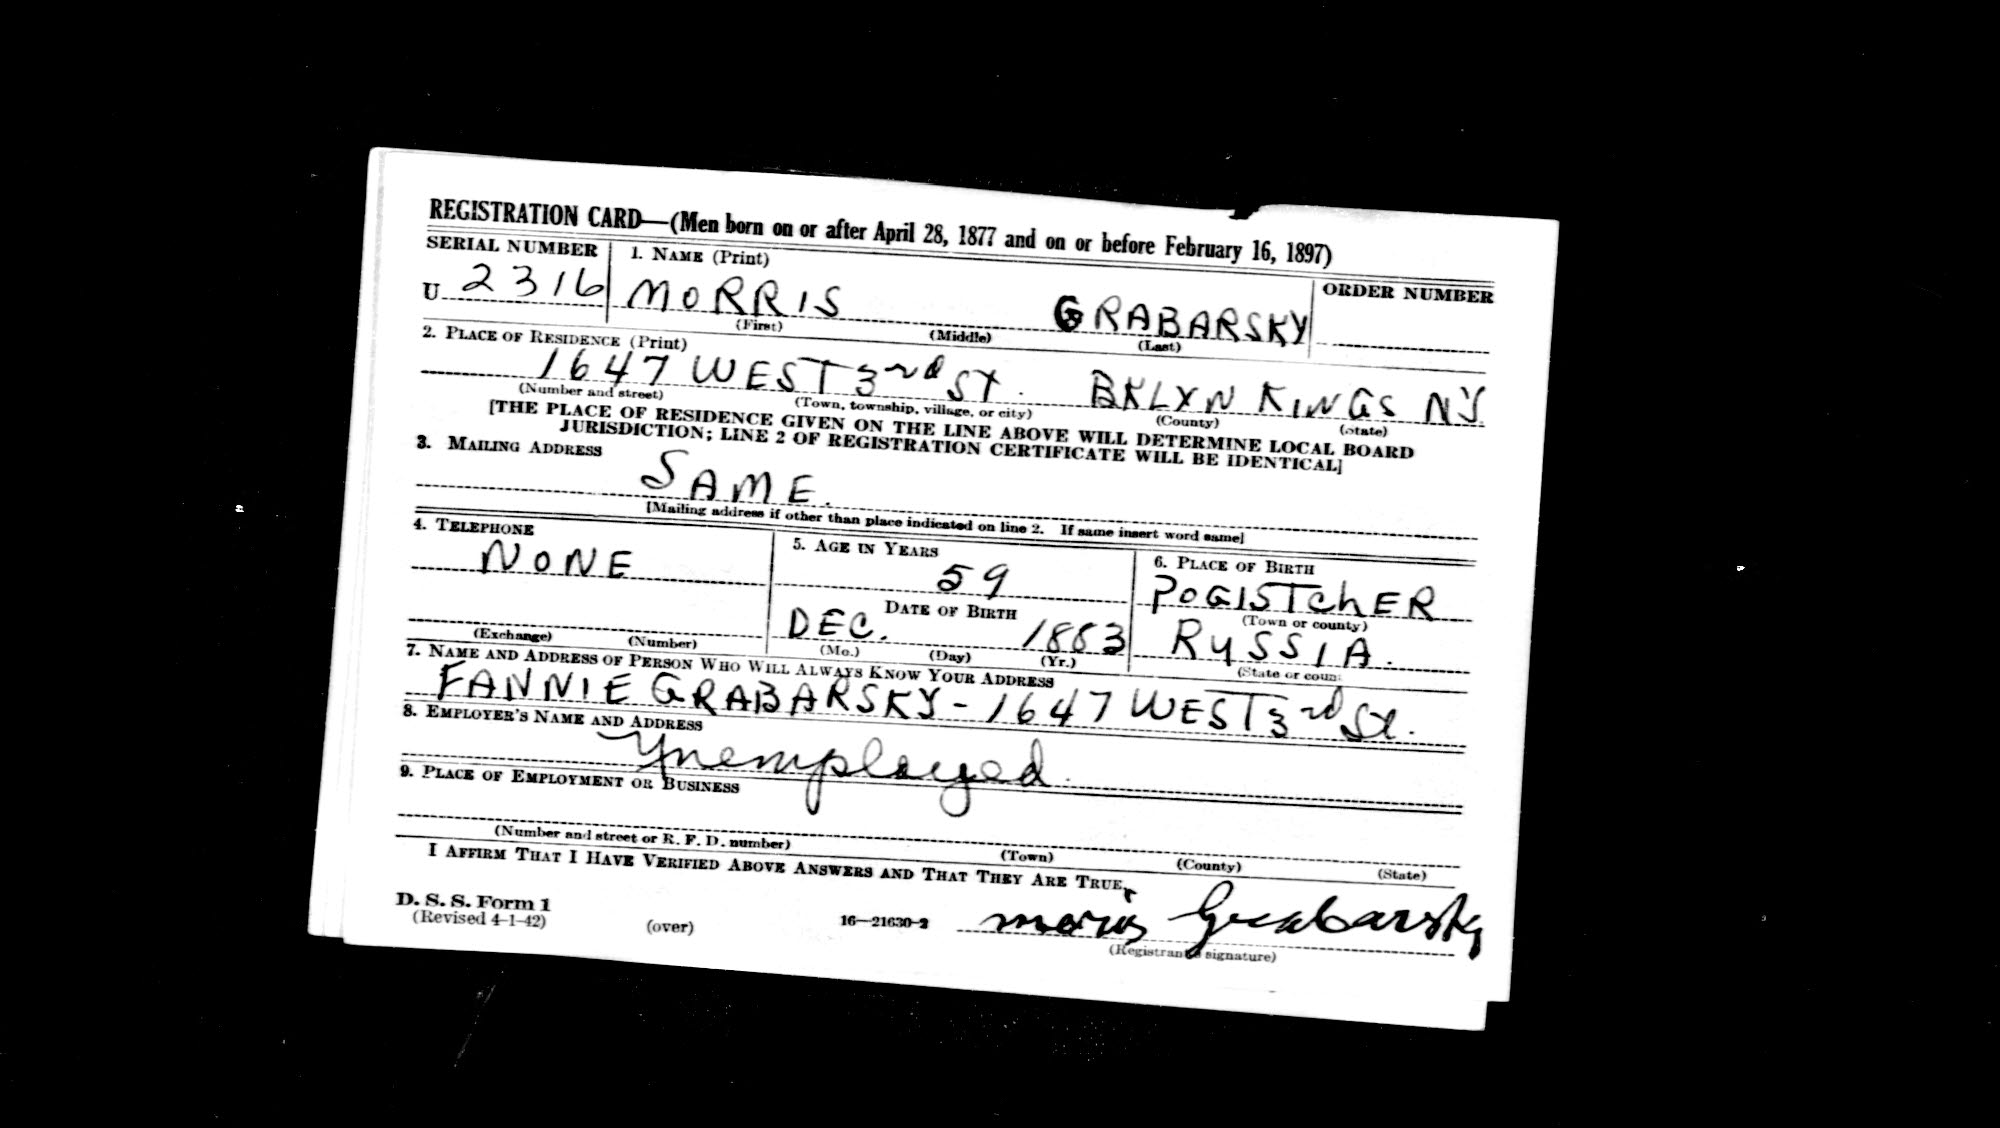 REGISTRATION CARD—(Men born on or after April 28, 1877 and on or before February 16, 1897)
SERIAL NUMBER 1. NAME (Print) ORDER NUMBER
U 2316 MORRIS GRABARSKY
(First) (Middle) (Last)
2. PLACE OF RESIDENCE (Print)
1647 WEST 3rd St. BKLYN KINGS NY.
(Number and street) (Town, township, village, or city) (County) (State)
[THE PLACE OF RESIDENCE GIVEN ON THE LINE ABOVE WILL DETERMINE LOCAL BOARD
JURISDICTION; LINE 2 OF REGISTRATION CERTIFICATE WILL BE IDENTICAL]
3. MAILING ADDRESS
SAME.
[Mailing address if other than place indicated on line 2. If same insert word same]
4. TELEPHONE 5. AGE IN YEARS 6. PLACE OF BIRTH
NONE 59 POGISTChER
DATE OF BIRTH (Town or county)
DEC. 1883 RUSSIA.
(Exchange) (Number) (Mo.) (Day) (Yr.) (State or coun
7. NAME AND ADDRESS OF PERSON WHO WILL ALWAYS KNOW YOUR ADDRESS
FANNIE GRABARSKY - 1647 WEST 3rd St.
8. EMPLOYER'S NAME AND ADDRESS
Unemployed.
9. PLACE OF EMPLOYMENT OR BUSINESS
(Number and street or R. F. D. number) (Town) (County) (State)
I AFFIRM THAT I HAVE VERIFIED ABOVE ANSWERS AND THAT THEY ARE TRUE.
D. S. S. Form 1
(Revised 4-1-42) (over) 16—21630-2 Morris Grabarsky
(Registrant's signature)